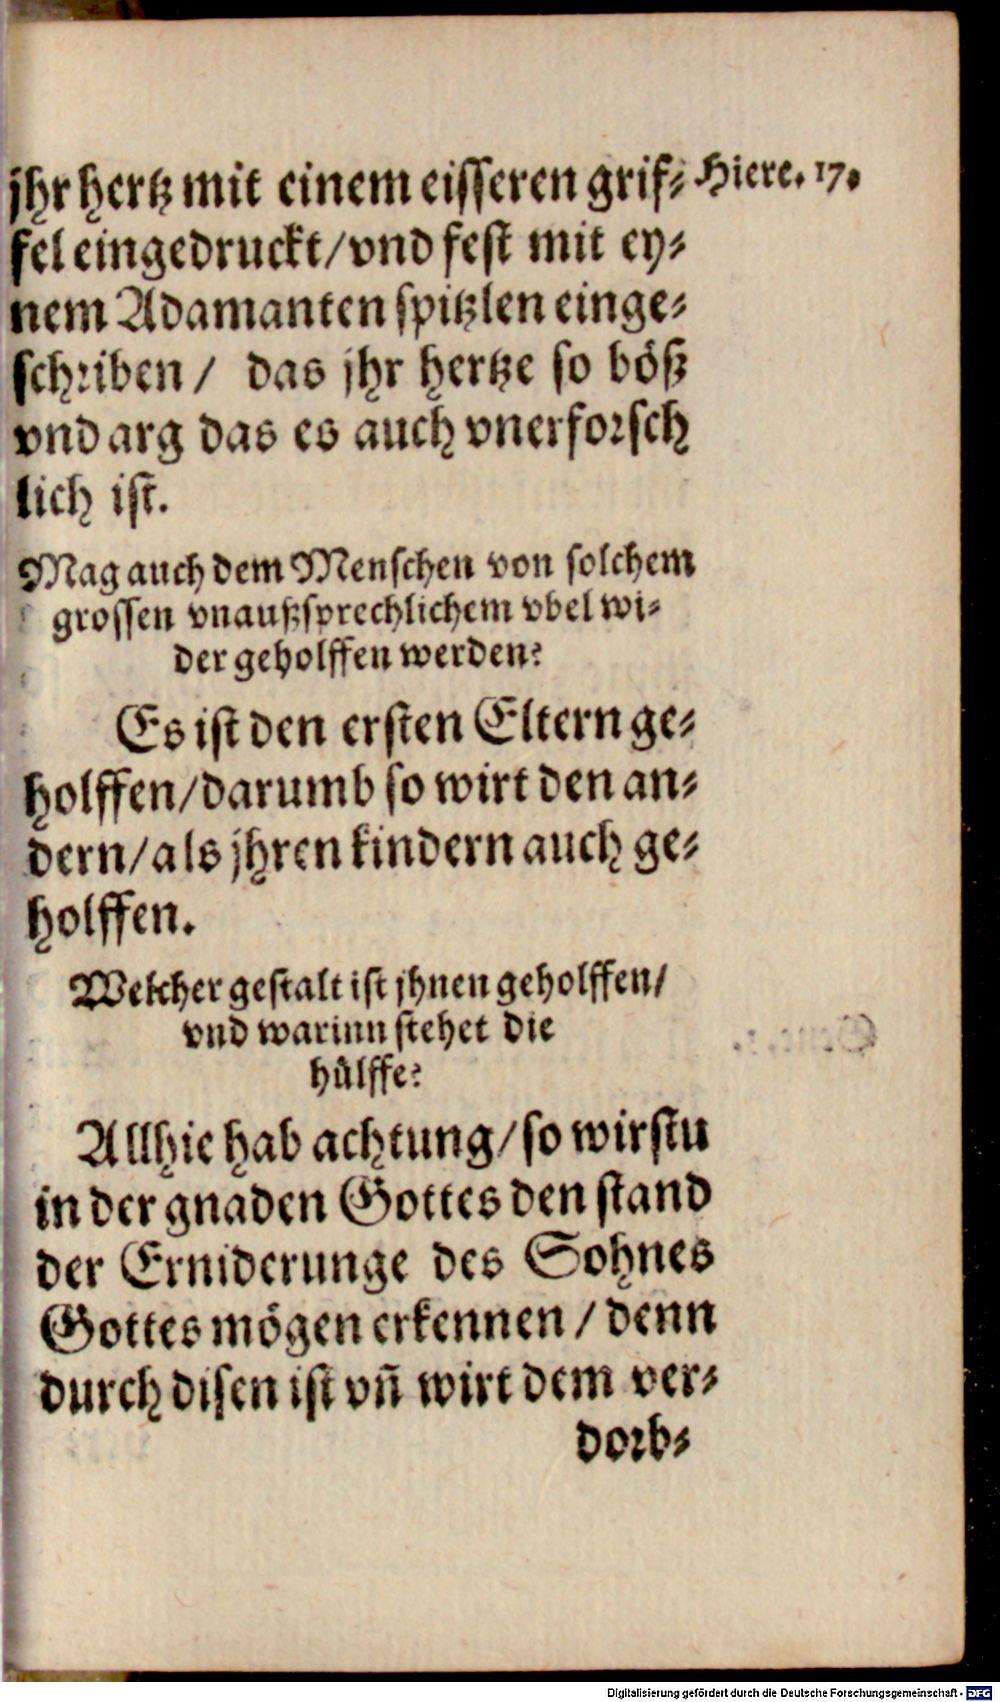 jhr hertz mit einem eisseren grif⸗ Hiere. 17.
fel eingedruckt/vnd fest mit ey⸗
nem Adamanten spitzlen einge⸗
schriben / das jhr hertze so böß
vnd arg das es auch vnerforsch
lich ist.
Mag auch dem Menschen von solchem
grossen vnaußsprechlichem vbel wi⸗
der geholffen werden?
Es ist den ersten Eltern ge⸗
holffen/darumb so wirt den an⸗
dern/als jhren kindern auch ge⸗
holffen.
Welcher gestalt ist jhnen geholffen/
vnd warinn stehet die
hülffe?
Allhie hab achtung/so wirstu
in der gnaden Gottes den stand
der Erniderunge des Sohnes
Gottes mögen erkennen / denn
durch disen ist vñ wirt dem ver⸗
dorb⸗
Digitalisierung gefördert durch die Deutsche Forschungsgemeinschaft - DFG